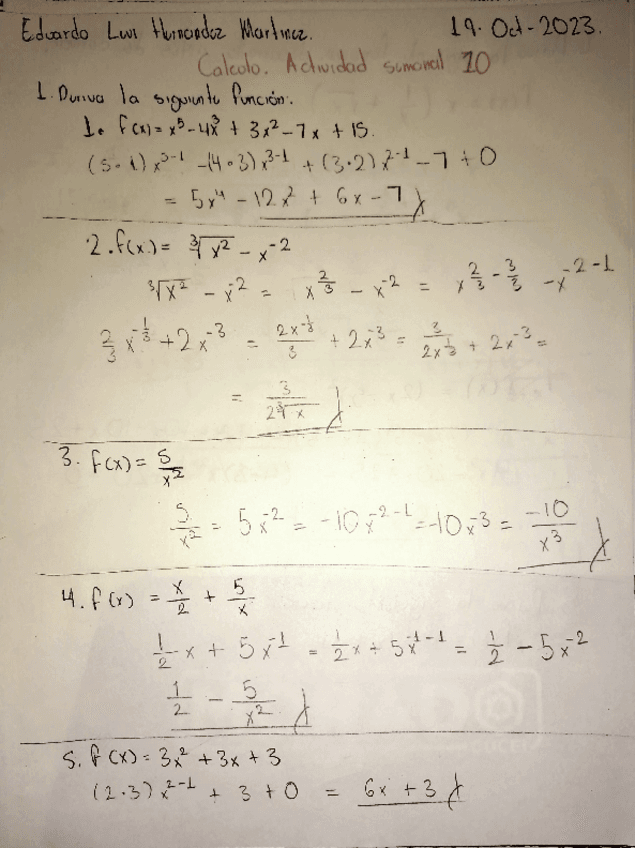 Eduardo Luis Hernandez Martinez. 19-Oct-2023.
Calculo. Actividad semanal 10
1. Deriva la siguiente función:
1. f(x) = x⁵ - 4x³ + 3x² - 7x + 15.
(5·1)x⁵⁻¹ - (4·3)x³⁻¹ + (3·2)x²⁻¹ - 7 + 0
= 5x⁴ - 12x² + 6x - 7
2. f(x) = ∛x² - x⁻²
∛x² - x⁻² = x^(2/3) - x⁻² = x^(2/3 - 3/3) - x^(-2-1)
2/3 x^(-1/3) + 2x⁻³ = 2x^(-1/3)/3 + 2x⁻³ = 3/(2x^(1/3)) + 2x⁻³ =
= 3/(2∛x)
3. f(x) = 5/x²
5/x² = 5x⁻² = -10x⁻²⁻¹ = -10x⁻³ = -10/x³
4. f(x) = x/2 + 5/x
1/2 x + 5x⁻¹ = 1/2 x + 5x⁻¹⁻¹ = 1/2 - 5x⁻²
1/2 - 5/x²
5. f(x) = 3x² + 3x + 3
(2·3)x²⁻¹ + 3 + 0 = 6x + 3